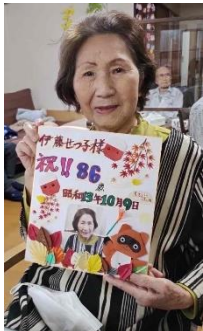 伊藤せつ子様
祝!! 86
歳
昭和13年10月9日